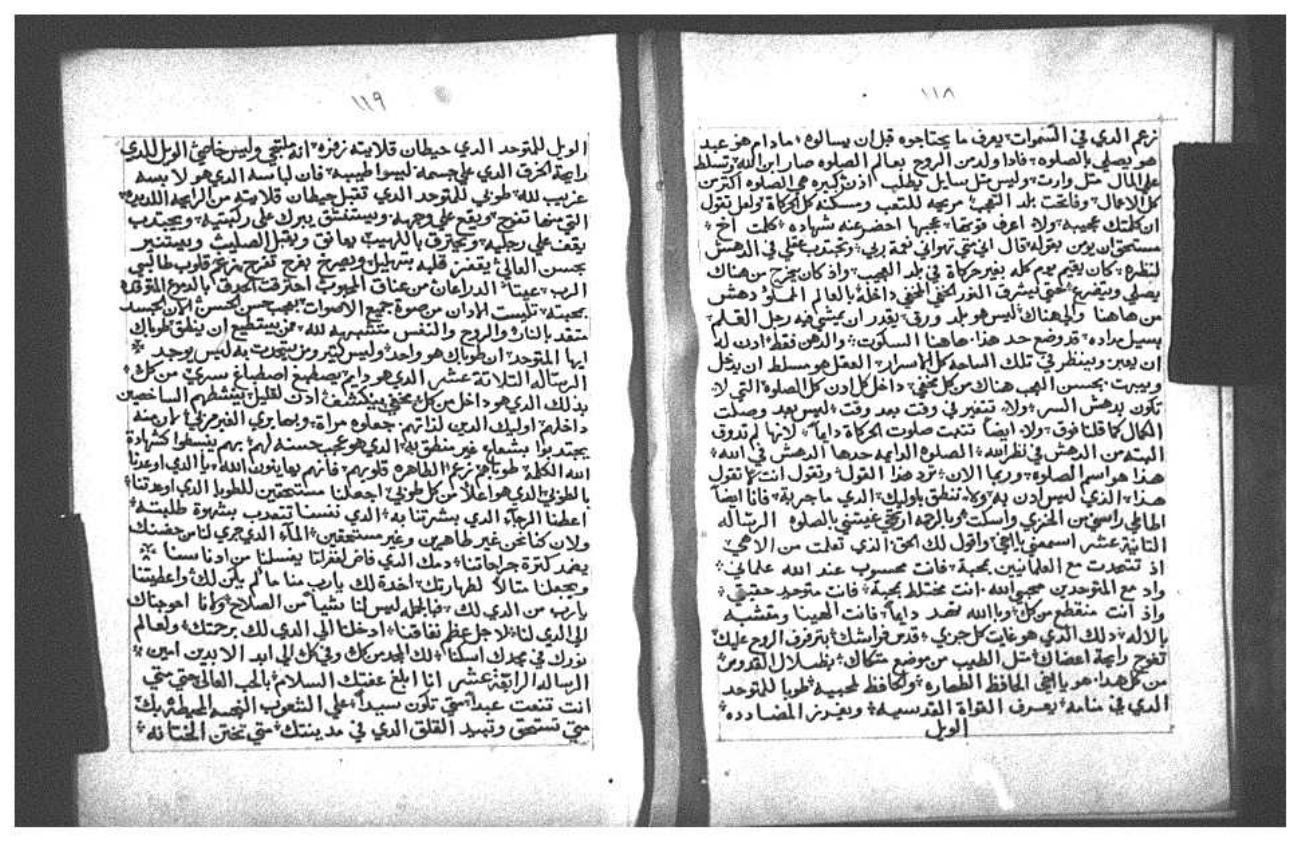 ١١٨
زعم الدي في السموات يعرف ما يحتاجوه قبل ان يسالوه مادام هو عبد
هو يصلي بالصلوه فادا ولد من الروح بعالم الصلوه صار ابن الله وتسلط
علي المال متل وارت وليس متل سايل يطلب ادن كبيره هي الصلوه اكتر من
كل الاعمال وفاتحت بلد التهب مريحه للتعب ومسكنه كل الحركاة ولعل تقول
ان كلمتك عجيبه ولا اعرف قوتها عجبها احضر عنه شهاده كلت اخ
مستحق ان يومن بقوله قال اني متي تهواني نعمة ربي وتجتدب عقلي في الدهش
لنظره كان يقيم يوم كله بغير حركاة في بلد العجب واذ كان يخرج من هناك
يصلي ويتضرع حتي يشرق النور الخفي المخفي داخله بالعالم المملؤ دهش
من هاهنا والي هناك ليس هو بلد ورقي يقدر ان يمشي فيه رجل القلم
يسيل مداده قد وضع حد هدا هاهنا السكوت والدهن فقط ادن له
ان يعبر وينظر في تلك الساحه كل الاسرار العقل هو مسلط ان يدخل
ويبهت بحسن العجب هناك من كل مخفي داخل كل ادن كل الصلوة التي لا
تكون بدهش السر ولا تتغير في وقت بعد وقت ليس بعد وصلت
الكمال كما قلنا فوق ولا ايضا تتبت صلوت الحركاة دايما لانها لم تدوق
البته من الدهش في نظر الله الصلوة الدايمه حدها الدهش في الله
هدا هو اسم الصلوه وربما الان ترد هدا القول وتقول انت كما تقول
هدا الذي ليس ادن به ولا تنطق باوليك الدي ما جربة فانا ايضا
اطاطي راسي من الخزي واسكت وبالرحمه ارتجي عيشتي بالصلوه الرساله
التانية عشر اسمعني يااخي واقول لك الحق الذي تعلمت من الاهي
اذ تتحدت مع العلمانيين بمحبة فانت محسوب عند الله علماني
واد مع المتوحدين محبي الله انت مختلط بمحبة فانت متوحد حقيقي
واذ انت منقطع من كل وبالله تضمد دايما فانت الهينا ومتشبه
بالاله دلك الدي هو غايت كل جزي قدس فراشك بترفرف الروح عليك
تفوح رايحة اعضاك متل الطيب من موضع متكاك بظلال القدوس
من كل هدا هو يااخي الحافظ الطهاره والحافظ لمحبيه طوبا للمتوحد
الدي في منامه يعرف القواة القدسيه ويفرز المضادده
الويل
١١٩
الويل للمتوحد الدي حيطان قلايته زفره انه ملتجي وليس خلصي الويل للدي
رايحة الخرق الدي علي جسمه ليسوا طيبه فان لباسه الدي هو لابسه
غريب لله طوبي للمتوحد الدي تقبل حيطان قلايته من الرايحه اللديده
التي منها تفوح ويقع علي وجهه ويستنشق يبرك علي ركبتيه ويجتدب
يقف علي رجليه ويحترق باللهيب يعانق ويقبل الصليب ويستنير
بحسن العالي يقفز قلبه بتهليل ويصرخ بفرح تفرح زعم قلوب طالبي
الرب عيتا الدراعان من عناق المحبوب احترقت الجوف بالدموع المتوقده
بمحبته تليست الادان من صوة جميع الاصوات بعجب حس الحسن الان الجسد
متقد بالنار والروح والنفس متشبهه لله من يستطيع ان ينطق طوباك
ايها المتوحد ان طوباك هو واحد وليس كتير ومن يتحدت به ليس يوجد
الرساله التلاتة عشر الدي هو دايم يصطبغ اصطباغ سري من كل
بذلك الدي هو داخل من كل مخفي ينكشف ادن لقليل ينشطهم الساخصين
داخلهم اوليك الدين لداتهم جعلوه مراة وبها يري الغير مري لان منه
يجتدبوا بشعاع غير منطق به الدي هو عجب حسنه لهم بهم ينسطوا كشهادة
الله الكلمه طوباهم زعم الطاهره قلوبهم فانهم يعاينون الله يا الدي اوعدنا
بالطوبي الدي هو اعلا من كل طوبي اجعلنا مستحقين للطوبا الدي اوعدتنا
اعطنا الرجآء الدي بشرتنا به الدي نفسنا تتعدب بشهوة طلبته
ولان كنا نحن غير طاهرين وغير مستحقين المآء الدي جري لنا من حضنك
يضمد كترة جراحاتنا دمك الدي فاض لغفراننا يغسلنا من ادناسنا
ويجعلنا متالا لطهارتك اخدة لك يارب منا ما لم يكن لك واعطيتنا
يارب من الدي لك فبالجمله ليس لنا شيا من الصلاح واذا احوجناك
الي الدي لنا لاجل عظم نفاقنا ادخلنا الي الدي لك برحمتك ولعالم
نورك في مجدك اسكنا لك المجد من كل وفي كل الي ابد الابدين امين
الرساله الرابعة عشر انا ابلغ عفتك السلام بالحب العالي حتي متي
انت تنعت عبدا متي تكون سيدا علي الشعوب النجسه المحيطة بك
متي تستحق وتبيد القلق الدي في مدينتك متي تختن الختانه